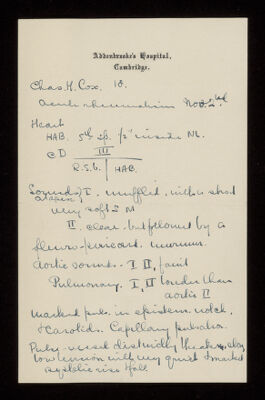 Addenbrooke's Hospital,
Cambridge.
Chas. H. Cox. 18.
Acute rheumatism Nov. 2nd
Heart
HAB. 5th sp. ½" inside NL.
CD III
R.S.B. HAB.
Sounds, I. muffled, with a short
at apex, very soft M
II. clear but followed by a
pleuro-pericard. murmur.
Aortic sounds - I II, faint
Pulmonary. I, II louder than
aortic II
Marked puls. in epistern. notch.
& carotids. Capillary pulsation.
Pulse - vessel distinctly
low tension with very quick & marked
systolic rise & fall